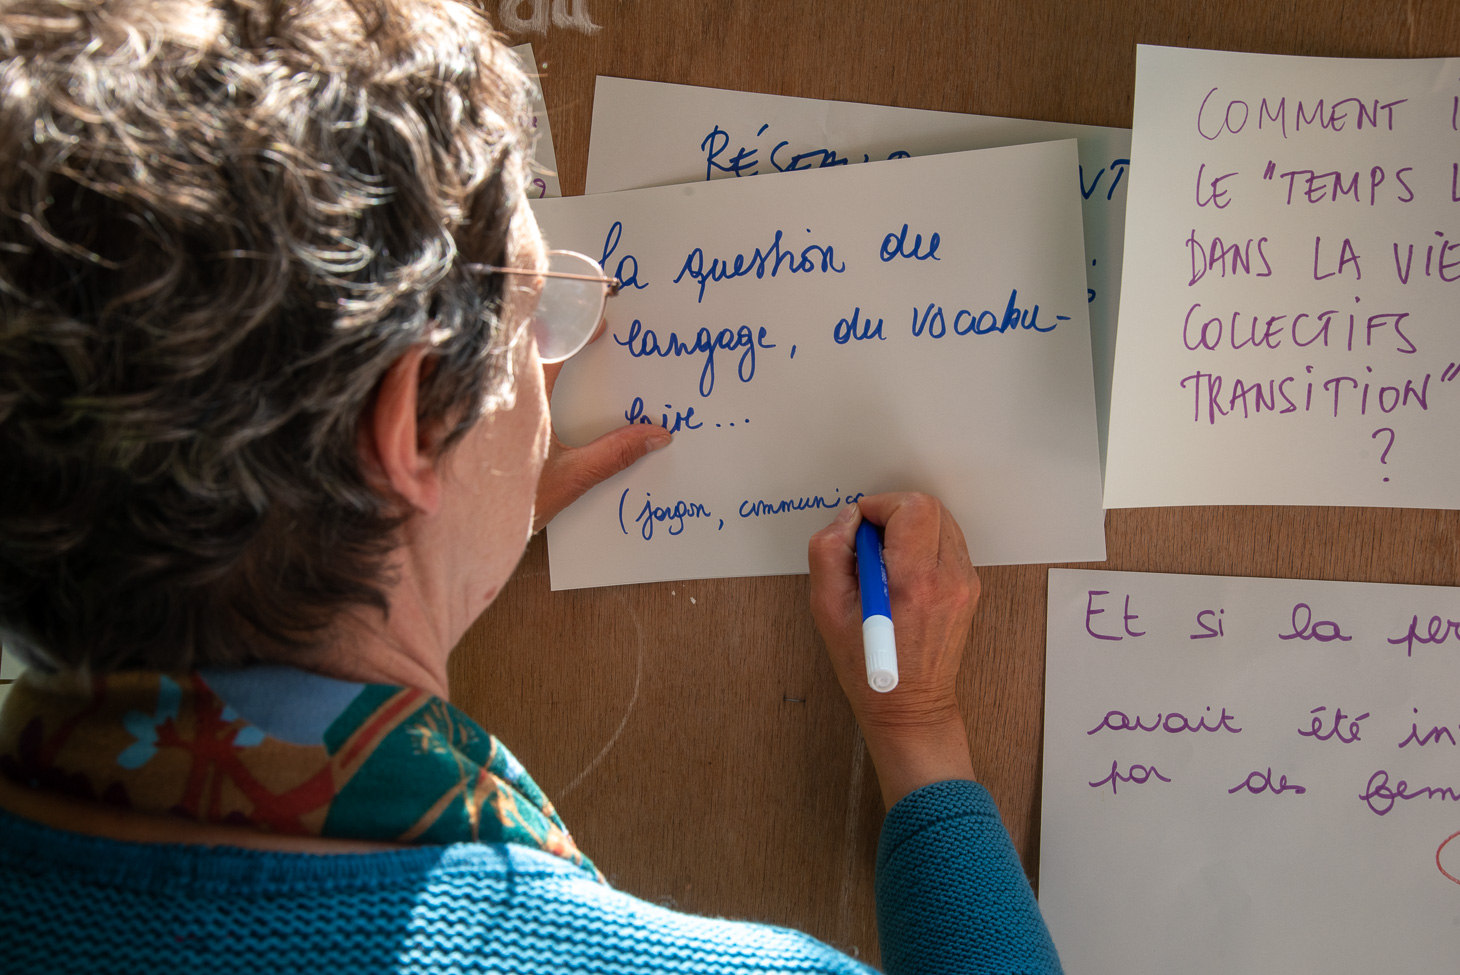 la question du
langage, du vocabu-
laire...
(jargon, communica
COMMENT
LE "TEMPS L
DANS LA VIE
COLLECTIFS
TRANSITION"
?
Et si la per
avait été in
par des fem